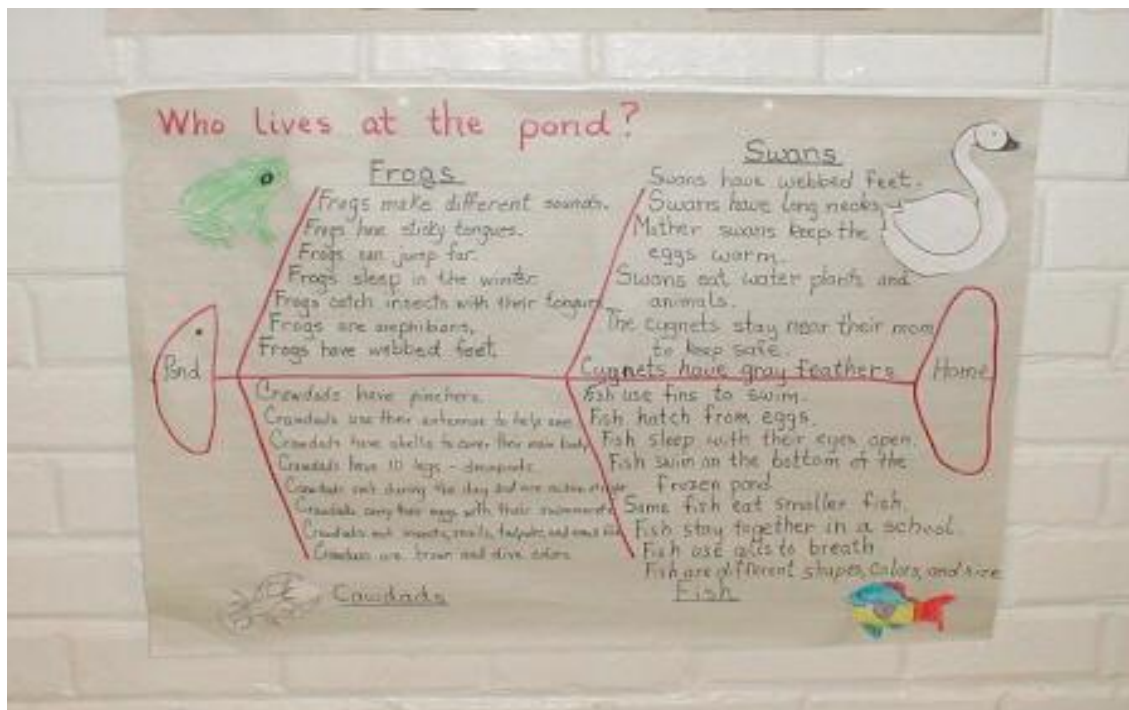 Who lives at the pond?
Frogs
Frogs make different sounds.
Frogs have sticky tongues.
Frogs can jump far.
Frogs sleep in the winter
Frogs catch insects with their tongues
Frogs are amphibians.
Frogs have webbed feet.
Swans
Swans have webbed feet.
Swans have long necks.
Mother swans keep the
eggs warm.
Swans eat water plants and
animals.
The cygnets stay near their mom
to keep safe.
Cygnets have gray feathers
Pond
Home
Crawdads have pinchers.
Crawdads use their antennae to help
Crawdads have shells to cover their main body
Crawdads have 10 legs - decapods
Crawdads rest during the day and are active at
Crawdads carry their eggs with their swimmerets
Crawdads eat insects, snails, tadpoles, and small
Crawdads are brown and olive colors
Cawdads
Fish use fins to swim.
Fish hatch from eggs.
Fish sleep with their eyes open.
Fish swim on the bottom of the
frozen pond
Some fish eat smaller fish.
Fish stay together in a school.
Fish use gills to breath
Fish are different shapes, colors, and size
Fish